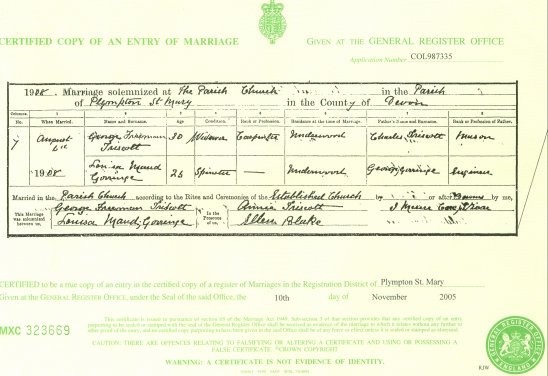 CERTIFIED COPY OF AN ENTRY OF MARRIAGE
GIVEN AT THE GENERAL REGISTER OFFICE
Application Number COL987335
1908. Marriage solemnized at The Parish Church in the Parish
of Plympton St Mary in the County of Devon
Columns. 1 2 3 4 5 6 7 8
No. When Married. Name and Surname. Age Condition. Rank or Profession. Residence at the time of Marriage. Father's Name and Surname. Rank or Profession of Father.
7 August George Freeman Triscott 30 Widower Carpenter Underwood Charles Triscott Mason
1908 Louisa Maud Gorringe 26 Spinster — Underwood George Gorringe Engineer
Married in the Parish Church according to the Rites and Ceremonies of the Established Church by or after Banns by me,
This Marriage was solemnized between us, George Freeman Triscott
Louisa Maud Gorringe
in the Presence of us, Annie Triscott
Ellen Blake
CERTIFIED to be a true copy of an entry in the certified copy of a register of Marriages in the Registration District of Plympton St. Mary
Given at the GENERAL REGISTER OFFICE, under the Seal of the said Office, the 10th day of November 2005
MXC 323669
This certificate is issued in pursuance of section 65 of the Marriage Act 1949.
CAUTION: THERE ARE OFFENCES RELATING TO FALSIFYING OR ALTERING A CERTIFICATE AND USING OR POSSESSING A
FALSE CERTIFICATE. ©CROWN COPYRIGHT
WARNING: A CERTIFICATE IS NOT EVIDENCE OF IDENTITY.
GENERAL REGISTER OFFICE
ENGLAND
KJW